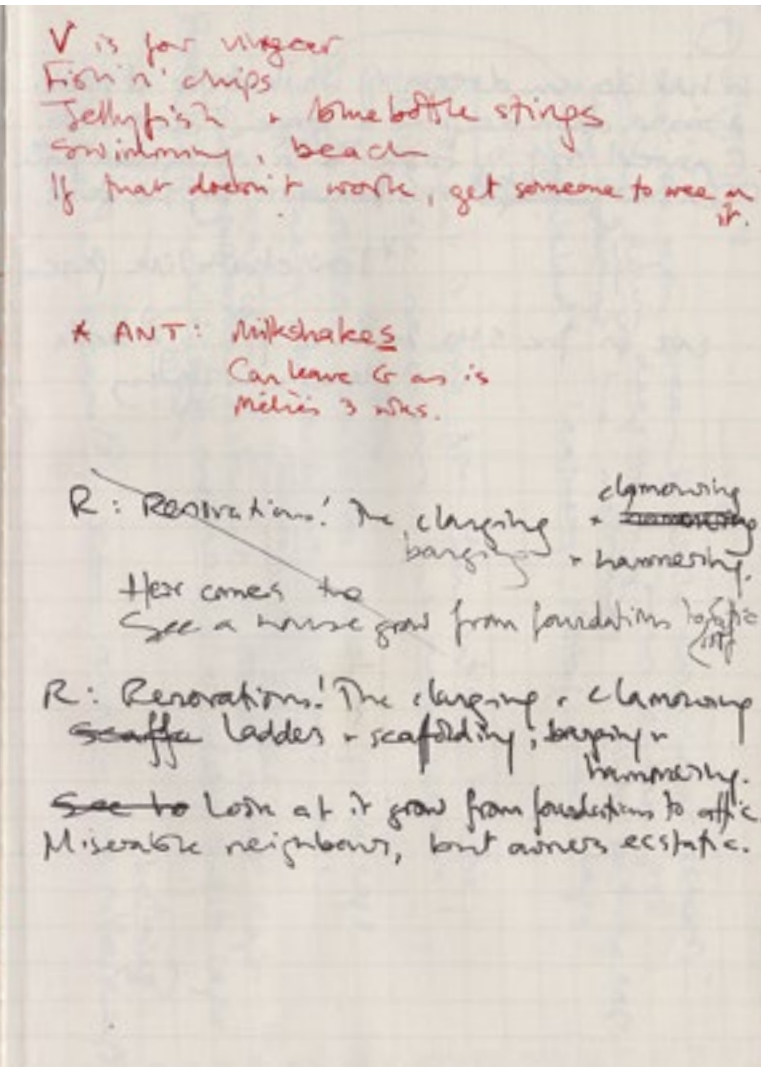 V is for vinegar
Fish n' chips
Jellyfish + bluebottle stings
Swimming, beach
If that doesn't work, get someone to wee on
it.
* ANT: Milkshakes
Can leave G as is
3 wks.
R: Renovations! The clanging + clamouring
banging + hammering.
Here comes the
See a house grow from foundations to attic
R: Renovations! The clanging + clamouring
Ladders + scaffolding, banging +
hammering.
See to Look at it grow from foundations to attic.
Miserable neighbours, but owners ecstatic.